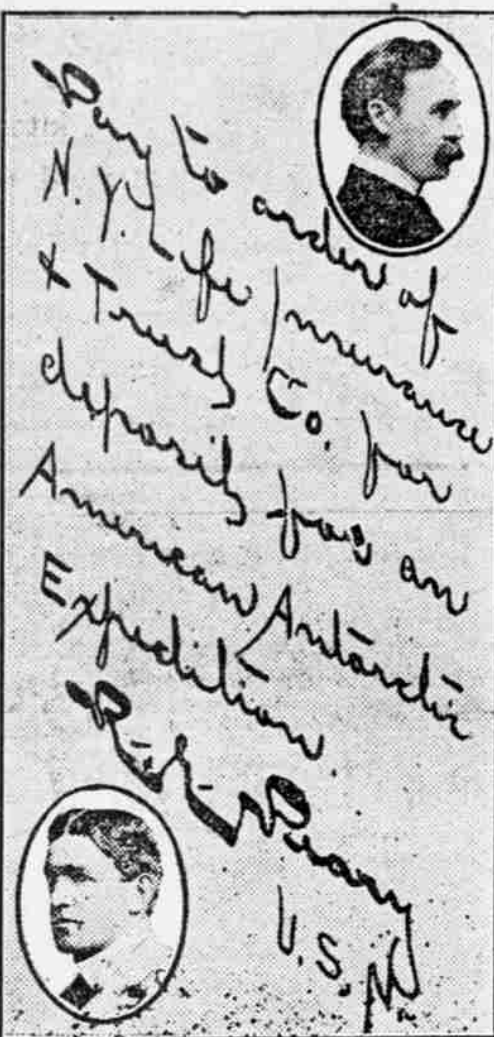 Pay to order of
N.Y. Life Insurance
& Trust Co. for
deposit for an
American Antarctic
Expedition.
R. E. Peary
U.S.N.